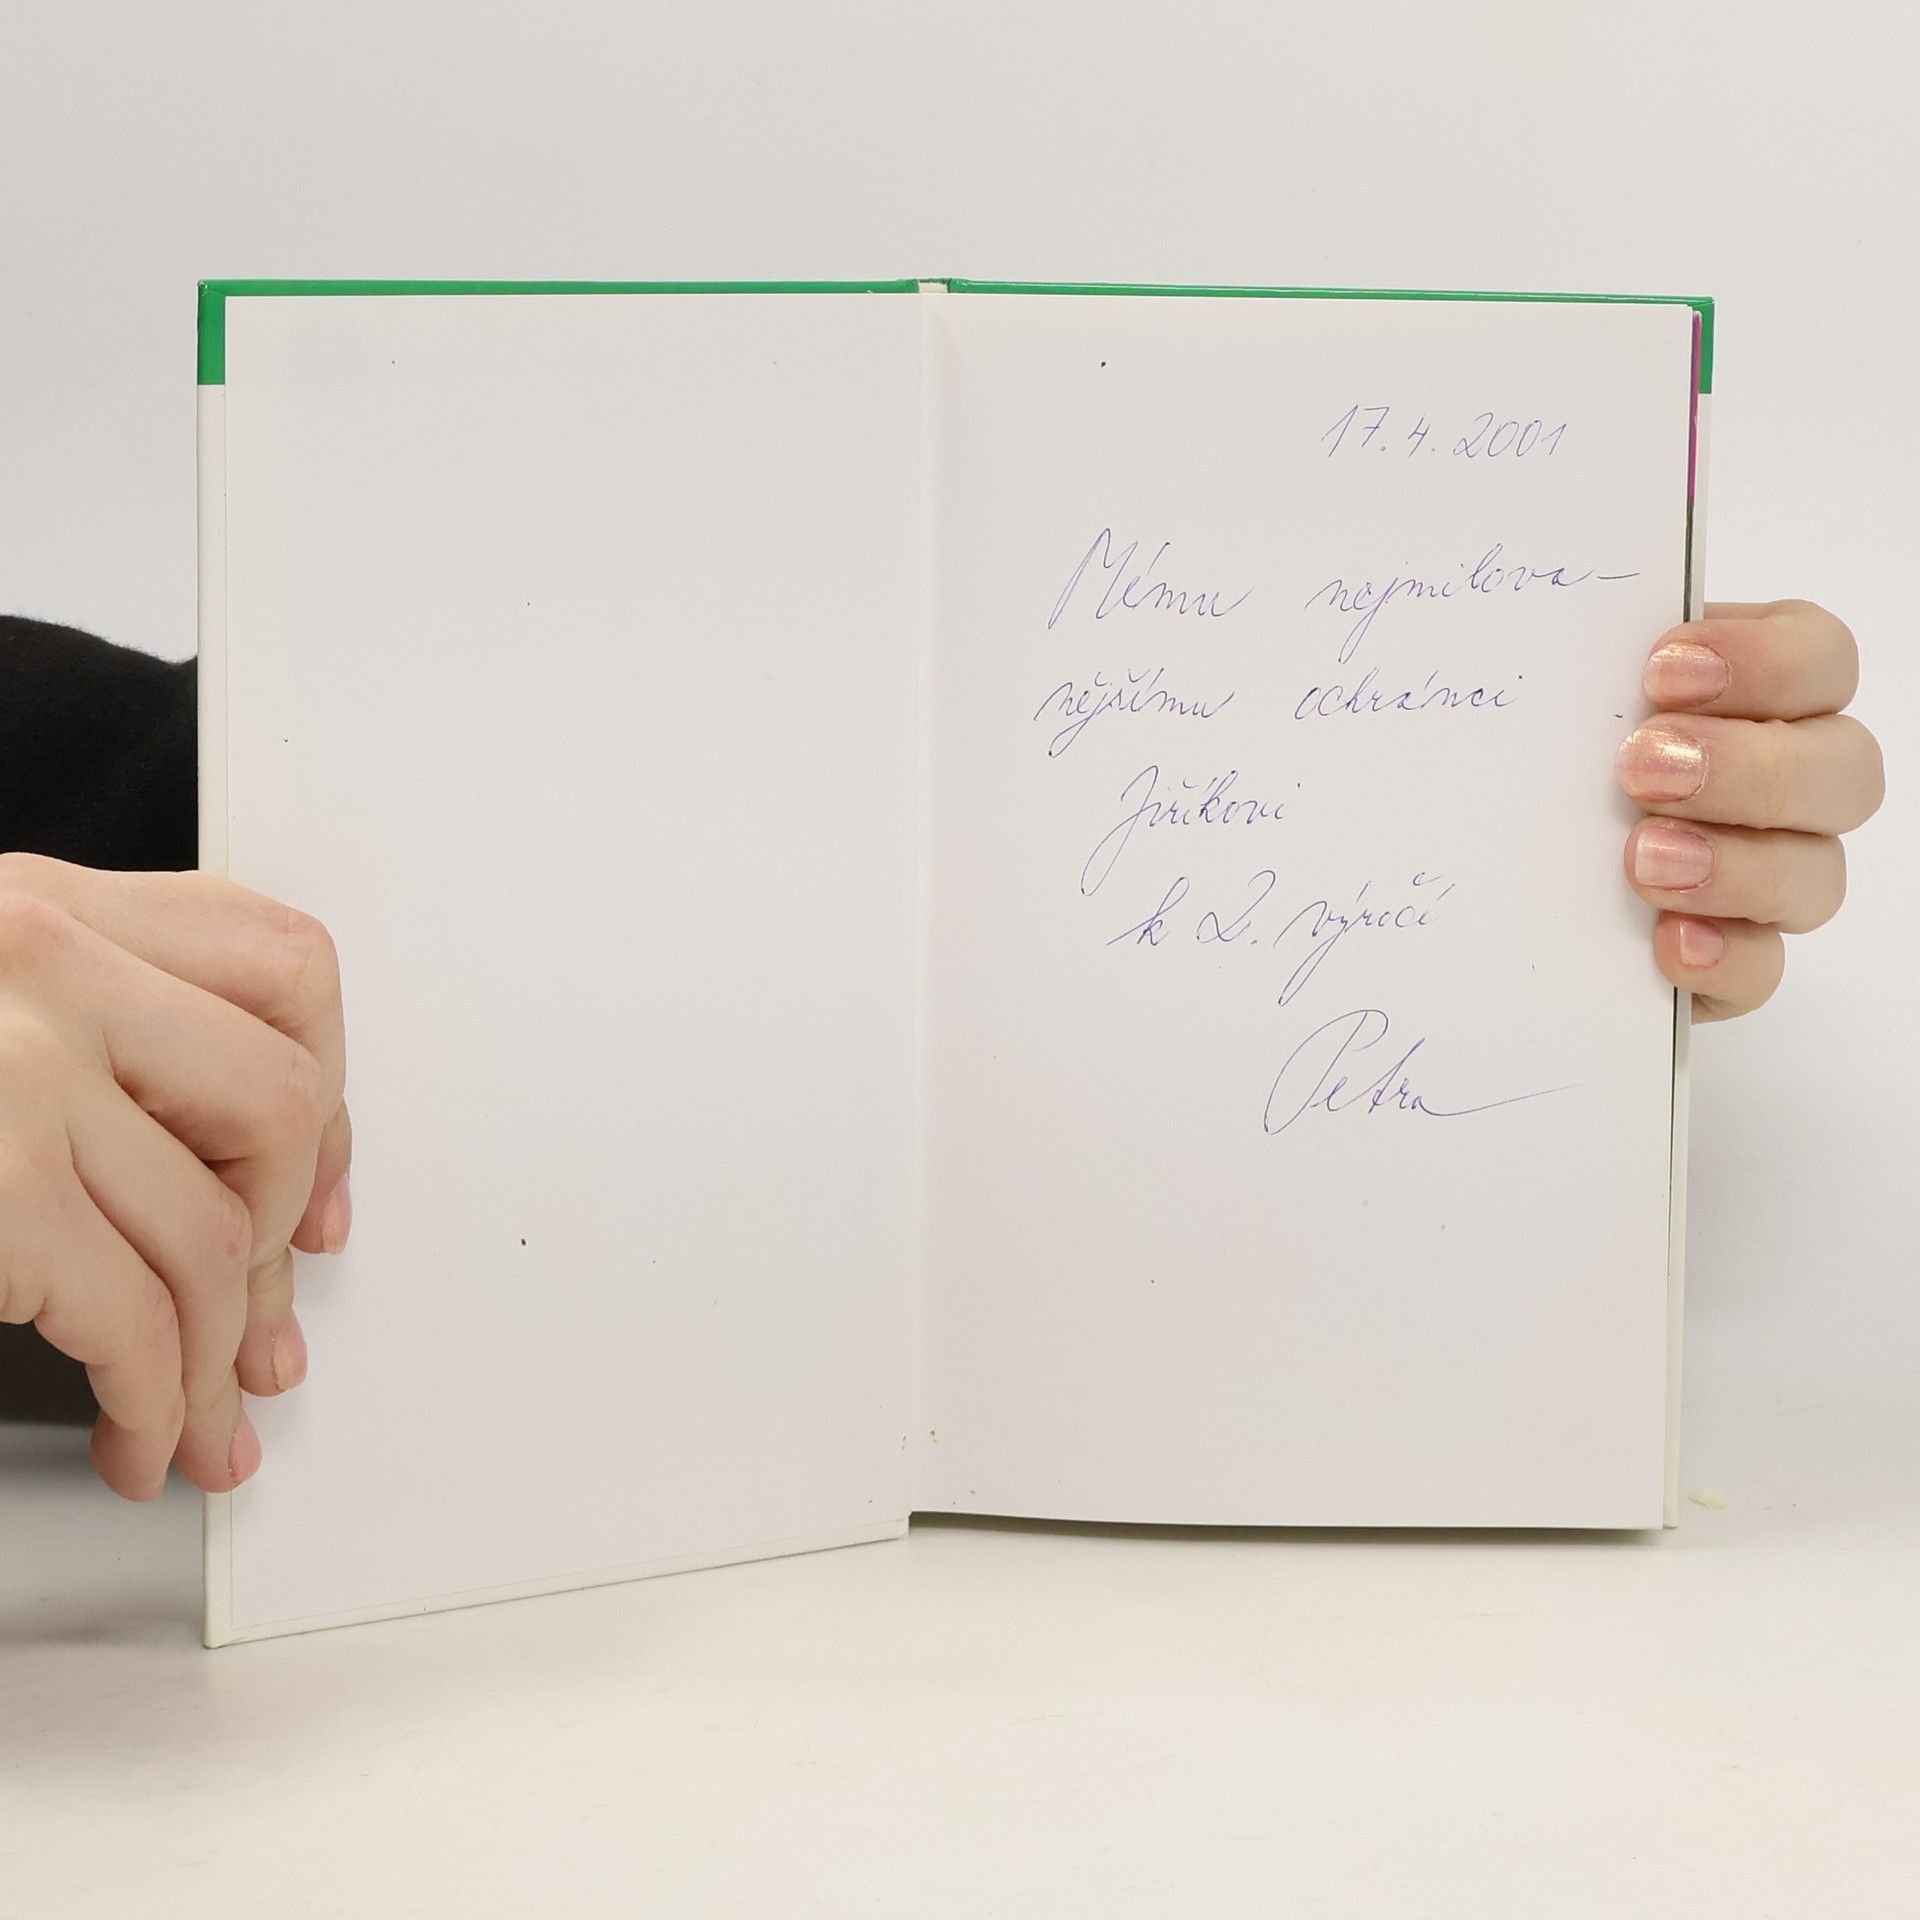 17. 4. 2001
Mému nejmilova-
nějšímu ochránci
Jiříkovi
k 2. výročí
Petra